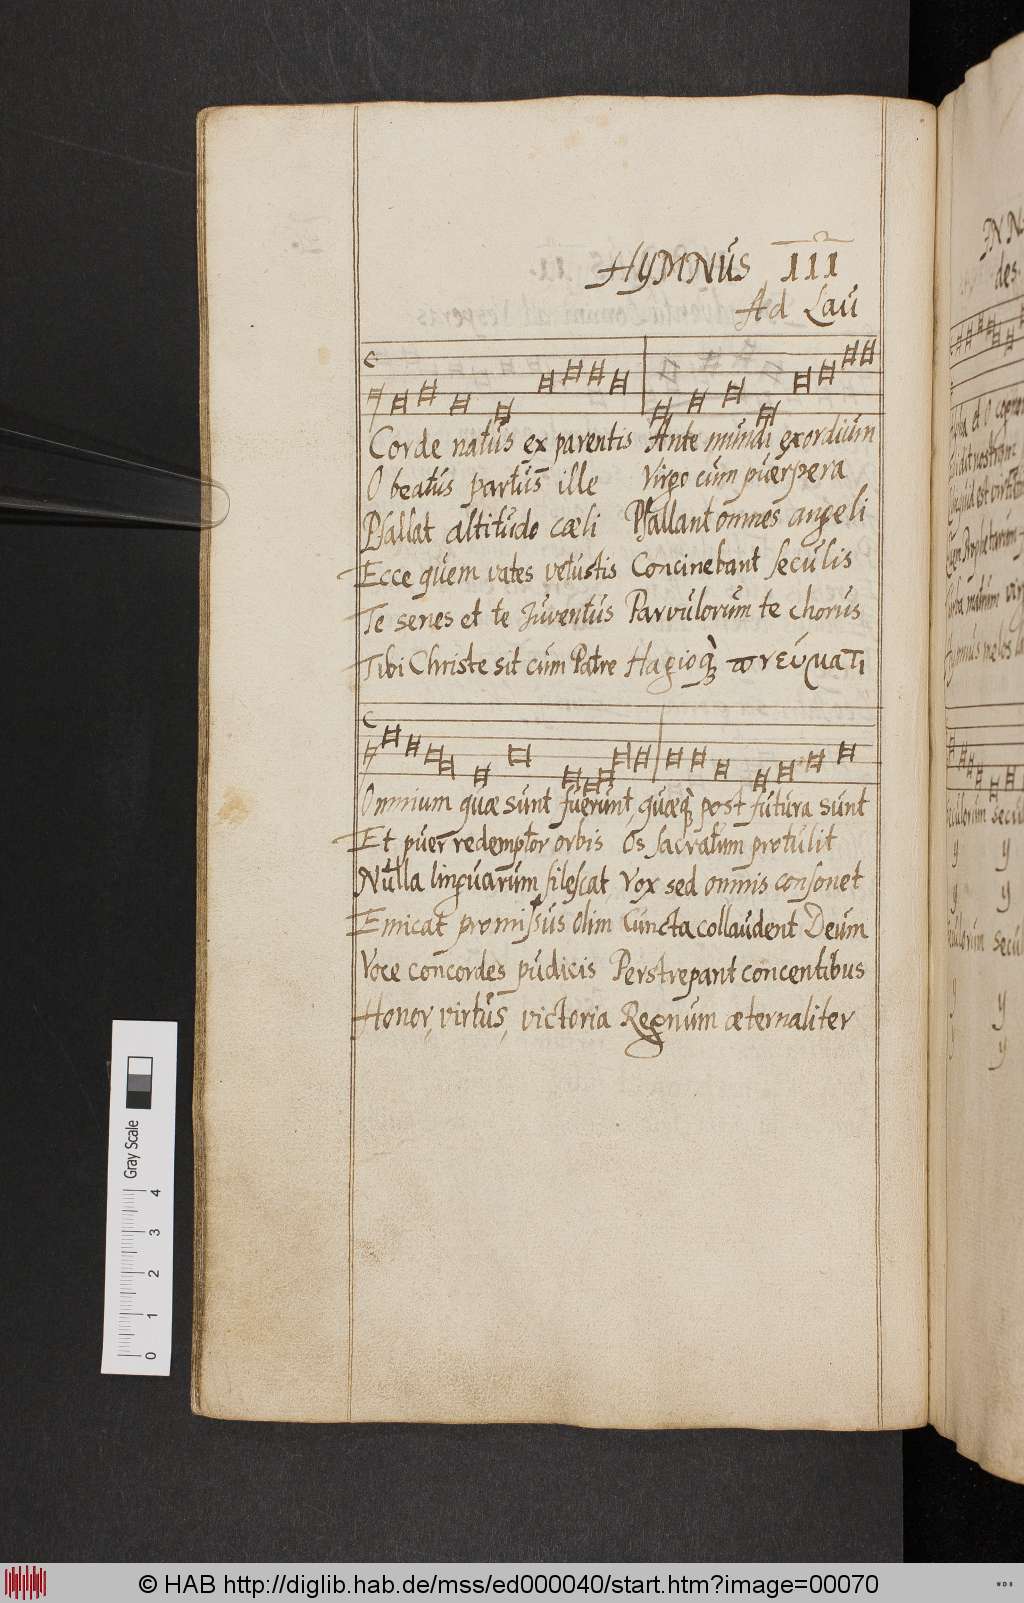 HYMNUS III
Ad Lau
Corde natus ex parentis Ante mundi exordium
O beatus partus ille Virgo cum puerpera
Psallat altitudo cæli Psallant omnes angeli
Ecce quem vates vetustis Concinebant seculis
Te senes et te Juventus Parvulorum te chorus
Tibi Christe sit cum Patre Hagioq́ꝫ πνεύματι
Omnium quæ sunt fuerunt, quæq́ꝫ post futura sunt
Et puer redemptor orbis Os sacratum protulit
Nulla linguarum silescat, Vox sed omnis consonet
Emicat promissus olim Cuncta collaudent Deum
Voce concordes pudicis Perstrepant concentibus
Honor, virtus, victoria Regnum æternaliter
des.
secu
y y
y y
secu
y y
y
Gray Scale
0 1 2 3 4
© HAB http://diglib.hab.de/mss/ed000040/start.htm?image=00070